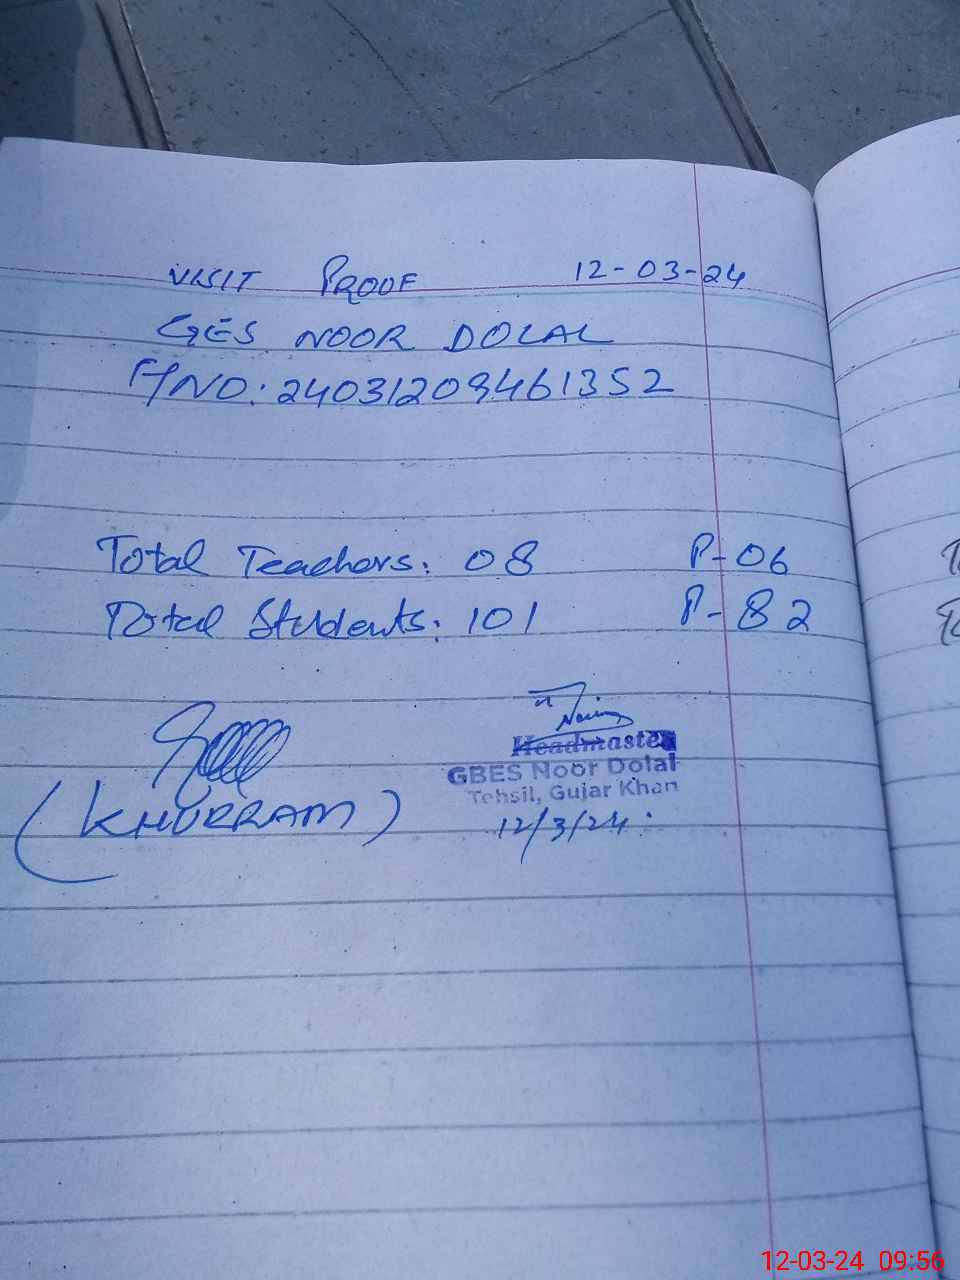 VISIT PROOF 12-03-24
GES NOOR DOLAL
F/NO: 24031209461352
Total Teachers: 08 P-06
Total Students: 101 P-82
Headmaster
GBES Noor Dolal
Tehsil, Gujar Khan
12/3/24
(KHURRAM)
12-03-24 09:56